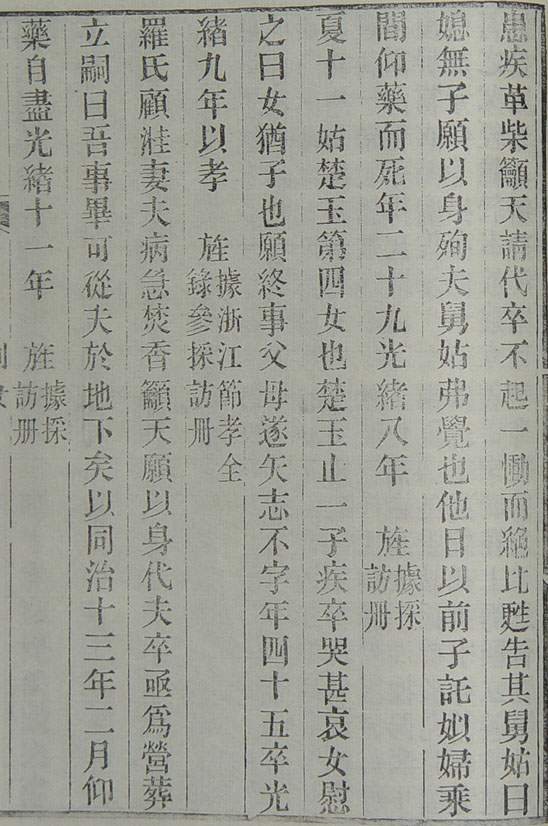 患疾革柴籲天請代卒不起一慟而絕比甦吿其舅姑曰
媳無子願以身殉夫舅姑弗覺也他日以前子託姒婦乘
間仰藥而死年二十九光緒八年 旌據採訪册
夏十一姑楚玉第四女也楚玉止一子疾卒哭甚哀女慰
之曰女猶子也願終事父母遂矢志不字年四十五卒光
緒九年以孝 旌據浙江節孝全錄參採訪册
羅氏顧溎妻夫病急焚香籲天願以身代夫卒亟爲營葬
立嗣曰吾事畢可從夫於地下矣以同治十三年二月仰
藥自盡光緒十一年 旌據採訪册